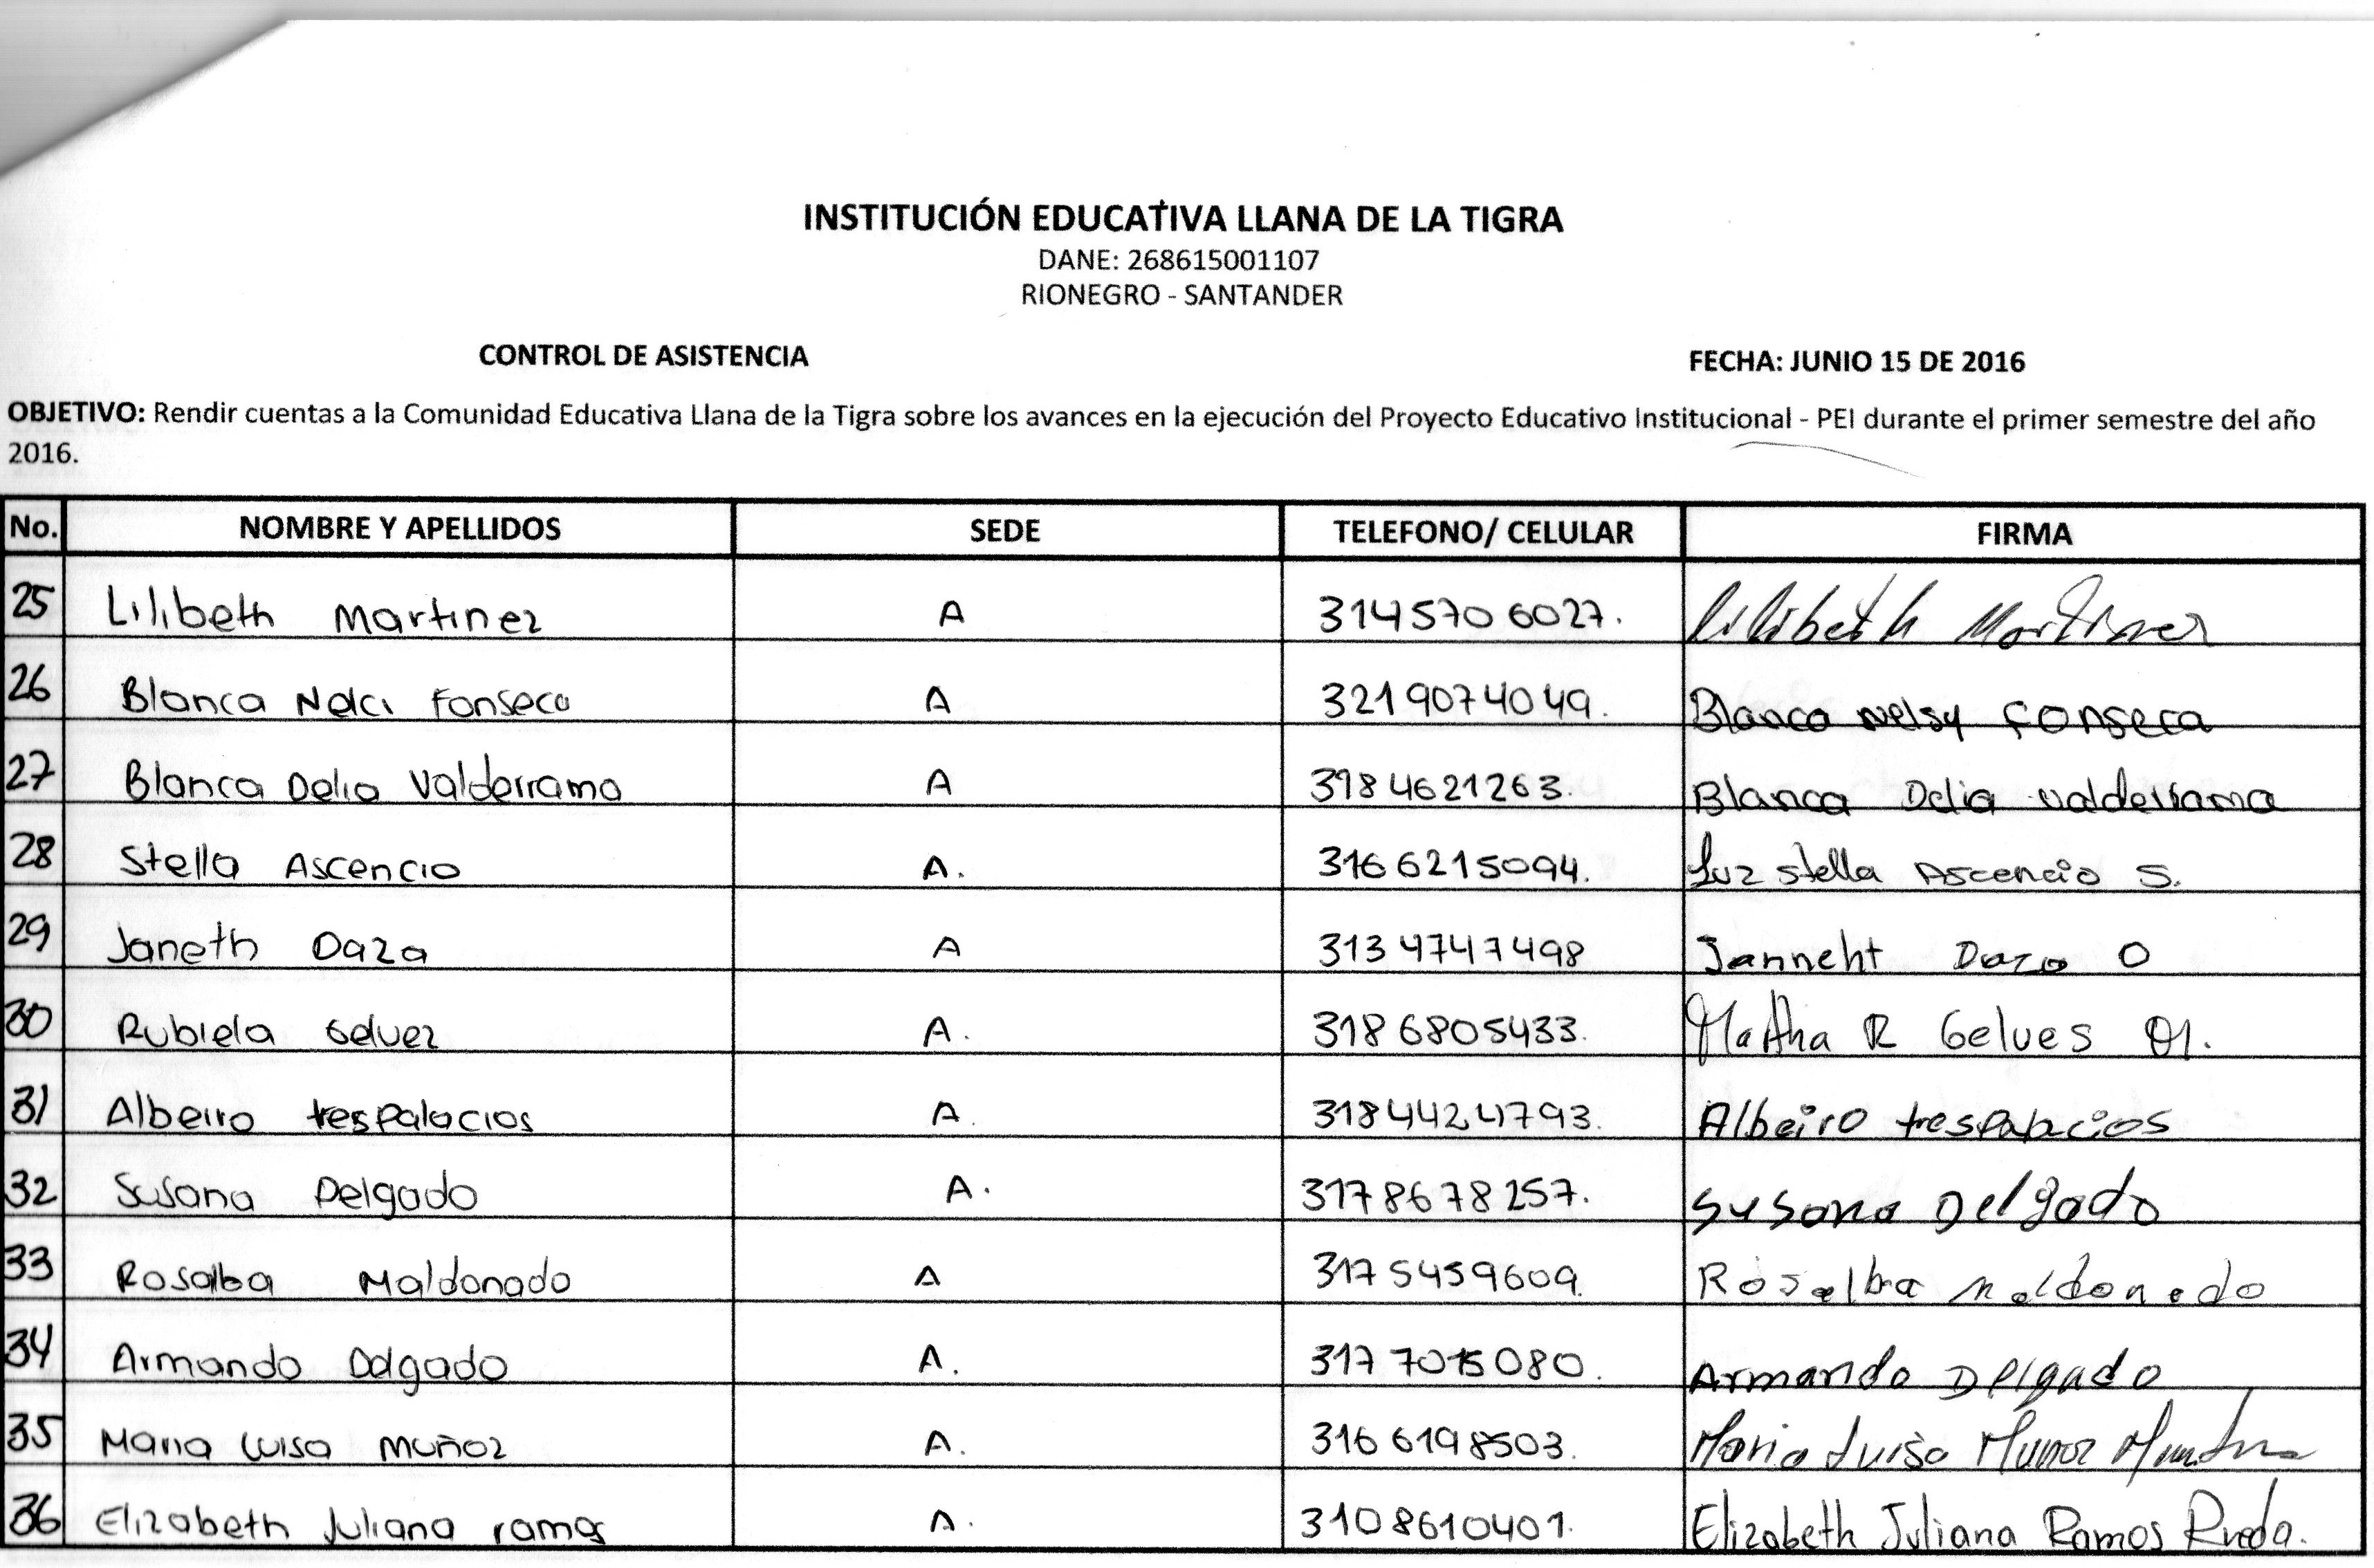 INSTITUCIÓN EDUCATIVA LLANA DE LA TIGRA
DANE: 268615001107
RIONEGRO - SANTANDER
CONTROL DE ASISTENCIA FECHA: JUNIO 15 DE 2016
OBJETIVO: Rendir cuentas a la Comunidad Educativa Llana de la Tigra sobre los avances en la ejecución del Proyecto Educativo Institucional - PEI durante el primer semestre del año
2016.
No. NOMBRE Y APELLIDOS SEDE TELEFONO/ CELULAR FIRMA
25 Lilibeth Martinez A 314570 6027. Lilibeth Martinez
26 Blanca Nelci Fonseca A 3219074049. Blanca Nelsy Fonseca
27 Blanca Delia Valderrama A 3184621263. Blanca Delia Valderrama
28 Stella Ascencio A. 3166215094. Luz stella Ascencio S.
29 Janeth Daza A 3134747498 Janneht Daza O
30 Rubiela Gelvez A. 3186805433. Martha R Gelves
31 Albeiro trespalacios A. 3184424793. Albeiro trespalacios
32 Susana Delgado A. 3178678257. Susana Delgado
33 Rosalba Maldonado A 3175459609. Rosalba Maldonado
34 Armando Delgado A. 317 7015080. Armando Delgado
35 Maria Luisa Muñoz A. 3166198503. Maria Luisa Munoz
36 Elizabeth Juliana ramos A. 3108610401. Elizabeth Juliana Ramos Rueda.